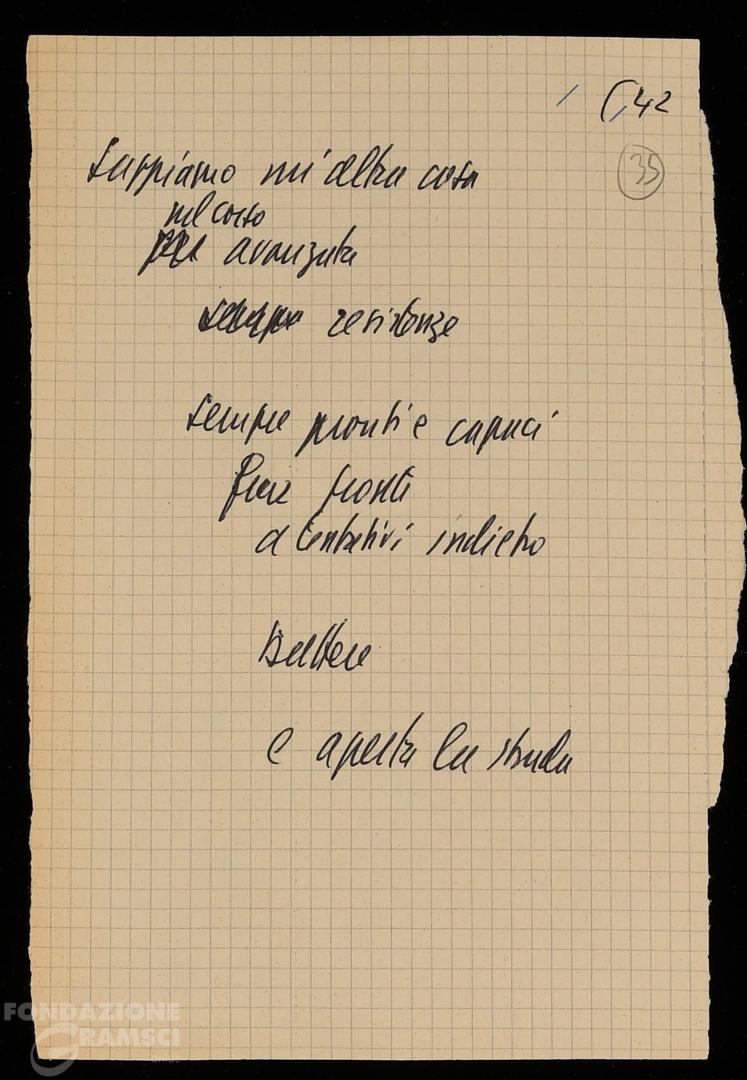 42
35
Sappiamo un'altra cosa
nel corso
avanzata
sempre resistenze
sempre pronti e capaci
far fronte
a tentativi indietro
Battere
e aperta la strada
FONDAZIONE
GRAMSCI
ONLUS